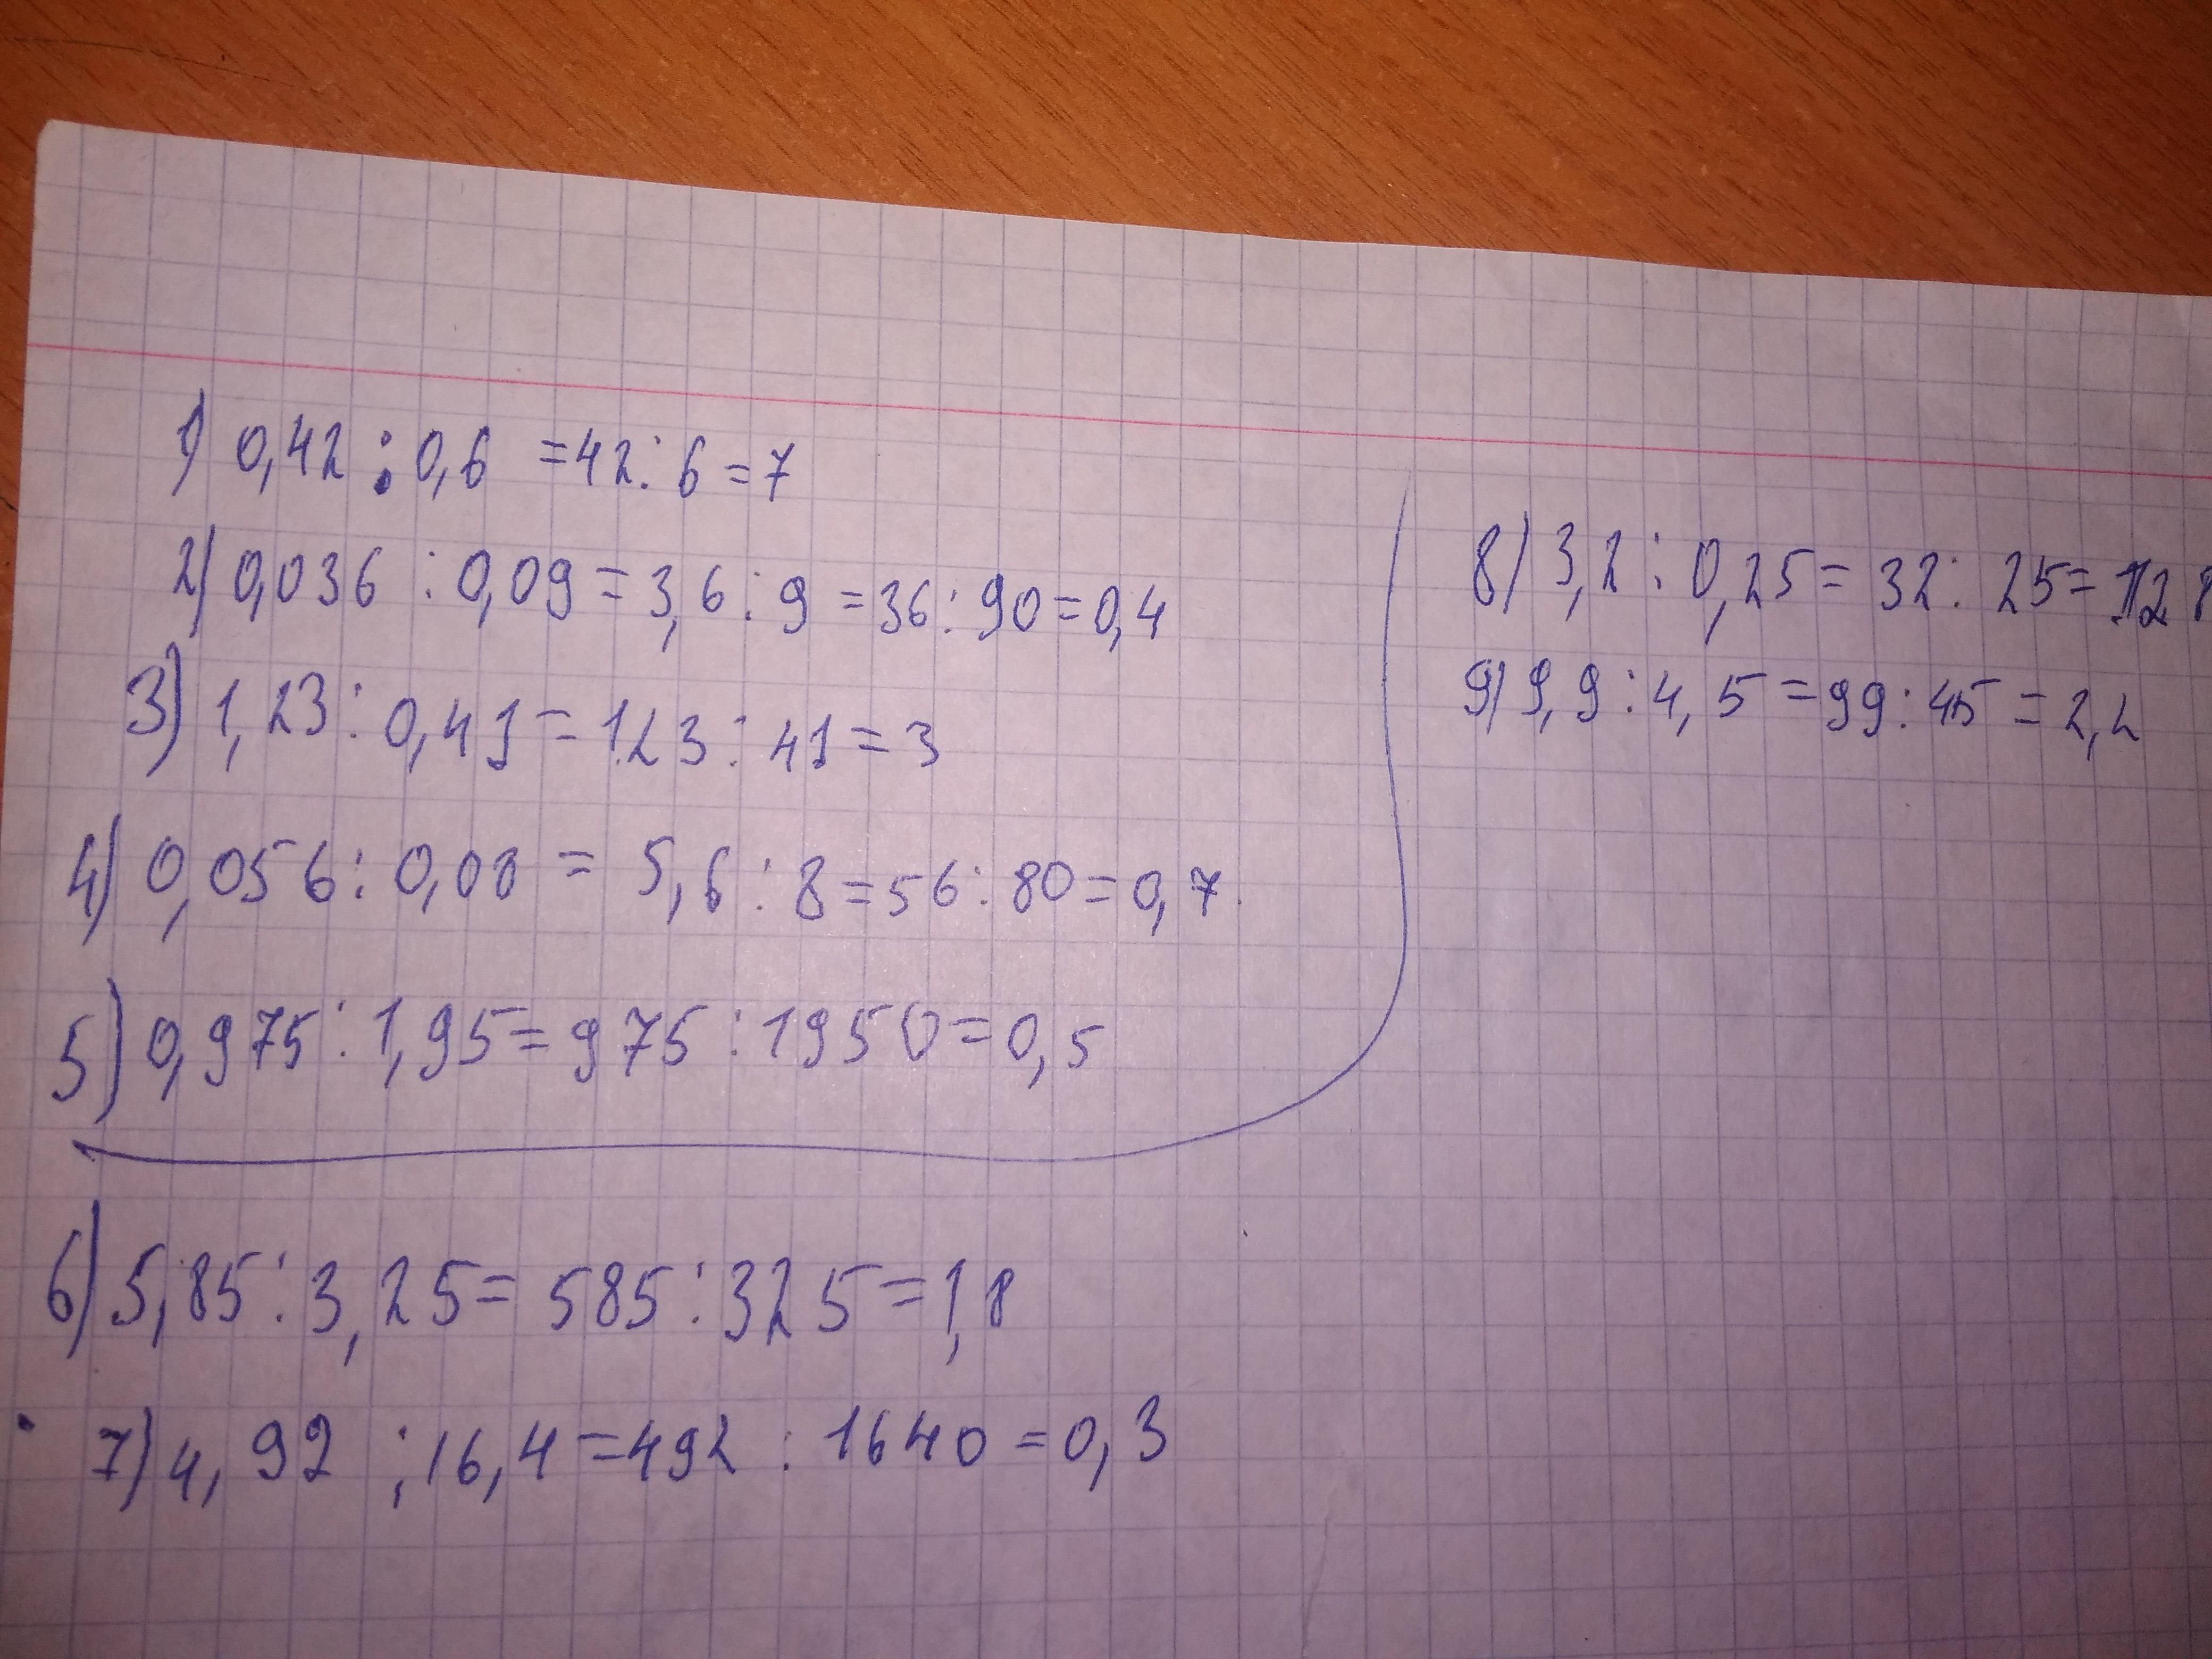 1) 0,42 : 0,6 = 42 : 6 = 7
2) 0,036 : 0,09 = 3,6 : 9 = 36 : 90 = 0,4
3) 1,23 : 0,41 = 123 : 41 = 3
4) 0,056 : 0,08 = 5,6 : 8 = 56 : 80 = 0,7
5) 0,975 : 1,95 = 975 : 1950 = 0,5
6) 5,85 : 3,25 = 585 : 325 = 1,8
7) 4,92 : 16,4 = 492 : 1640 = 0,3
8) 3,2 : 0,25 = 32 : 25 =
9) 9,9 : 4,5 = 99 : 45 = 2,2